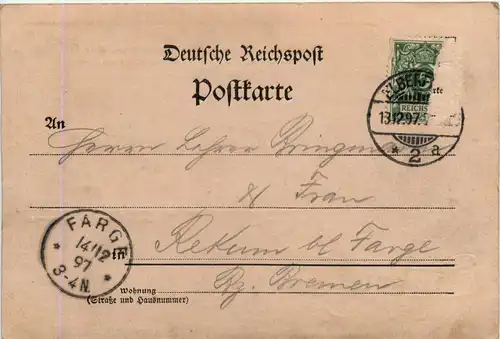 Deutsche Reichspost
Postkarte
ELBERF
13.12.97.
* 2 a
REICHS
An
Herrn Lehrer
& Frau
in Rekum bl Farge
Bz. Bremen
FARGE
14/12
97
3-4N.
Wohnung
(Straße und Hausnummer)